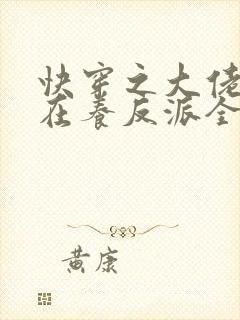 快穿之大佬
在养反派全
黄康